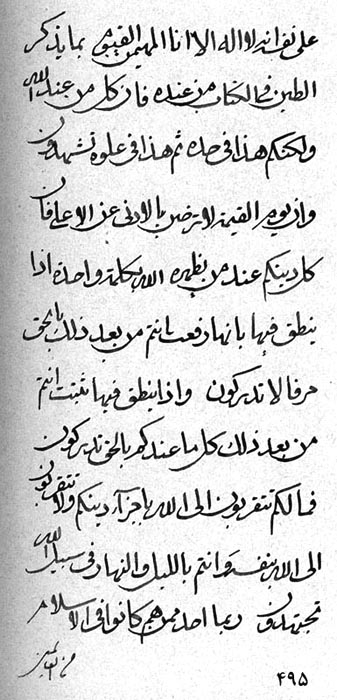 على نفسه انه لا اله الا انا المهيمن القيوم بما يذكر
الطين في الكتاب من عنده فان كل من عند الله
ولكنكم هذا في حده ثم هذا في علوه تشهدون
وان يوم القيمة لا ترضين بالادنى عن الاعلى فان
كل دينكم عند من يظهره الله بكلمة واحدة اذا
ينطق فيها بانها رفعت انتم من بعد ذلك بالحق
حرفا لا تدركون واذا ينطق فيها ثبتت انتم
من بعد ذلك كل ما عندكم بالحق تدركون
فمالكم تتقربون الى الله باجزآء دينكم ولا تتقربون
الى الله بنفسه وانتم بالليل والنهار في سبيل الله
تجتهدون ربما احد ممن هم كانوا في الاسلام
٤٩٥